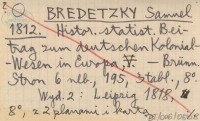 BREDETZKY Samuel
1812. Histor.-statist. Bei-
trag zum deutschen Kolonial-
-Wesen in Europa, V. - Brünn.
Stron 6 nlb., 195, 1 tabl., 8°.
Wyd. 2: Leipzig 1818, w
8°, z 2 planami i kartą